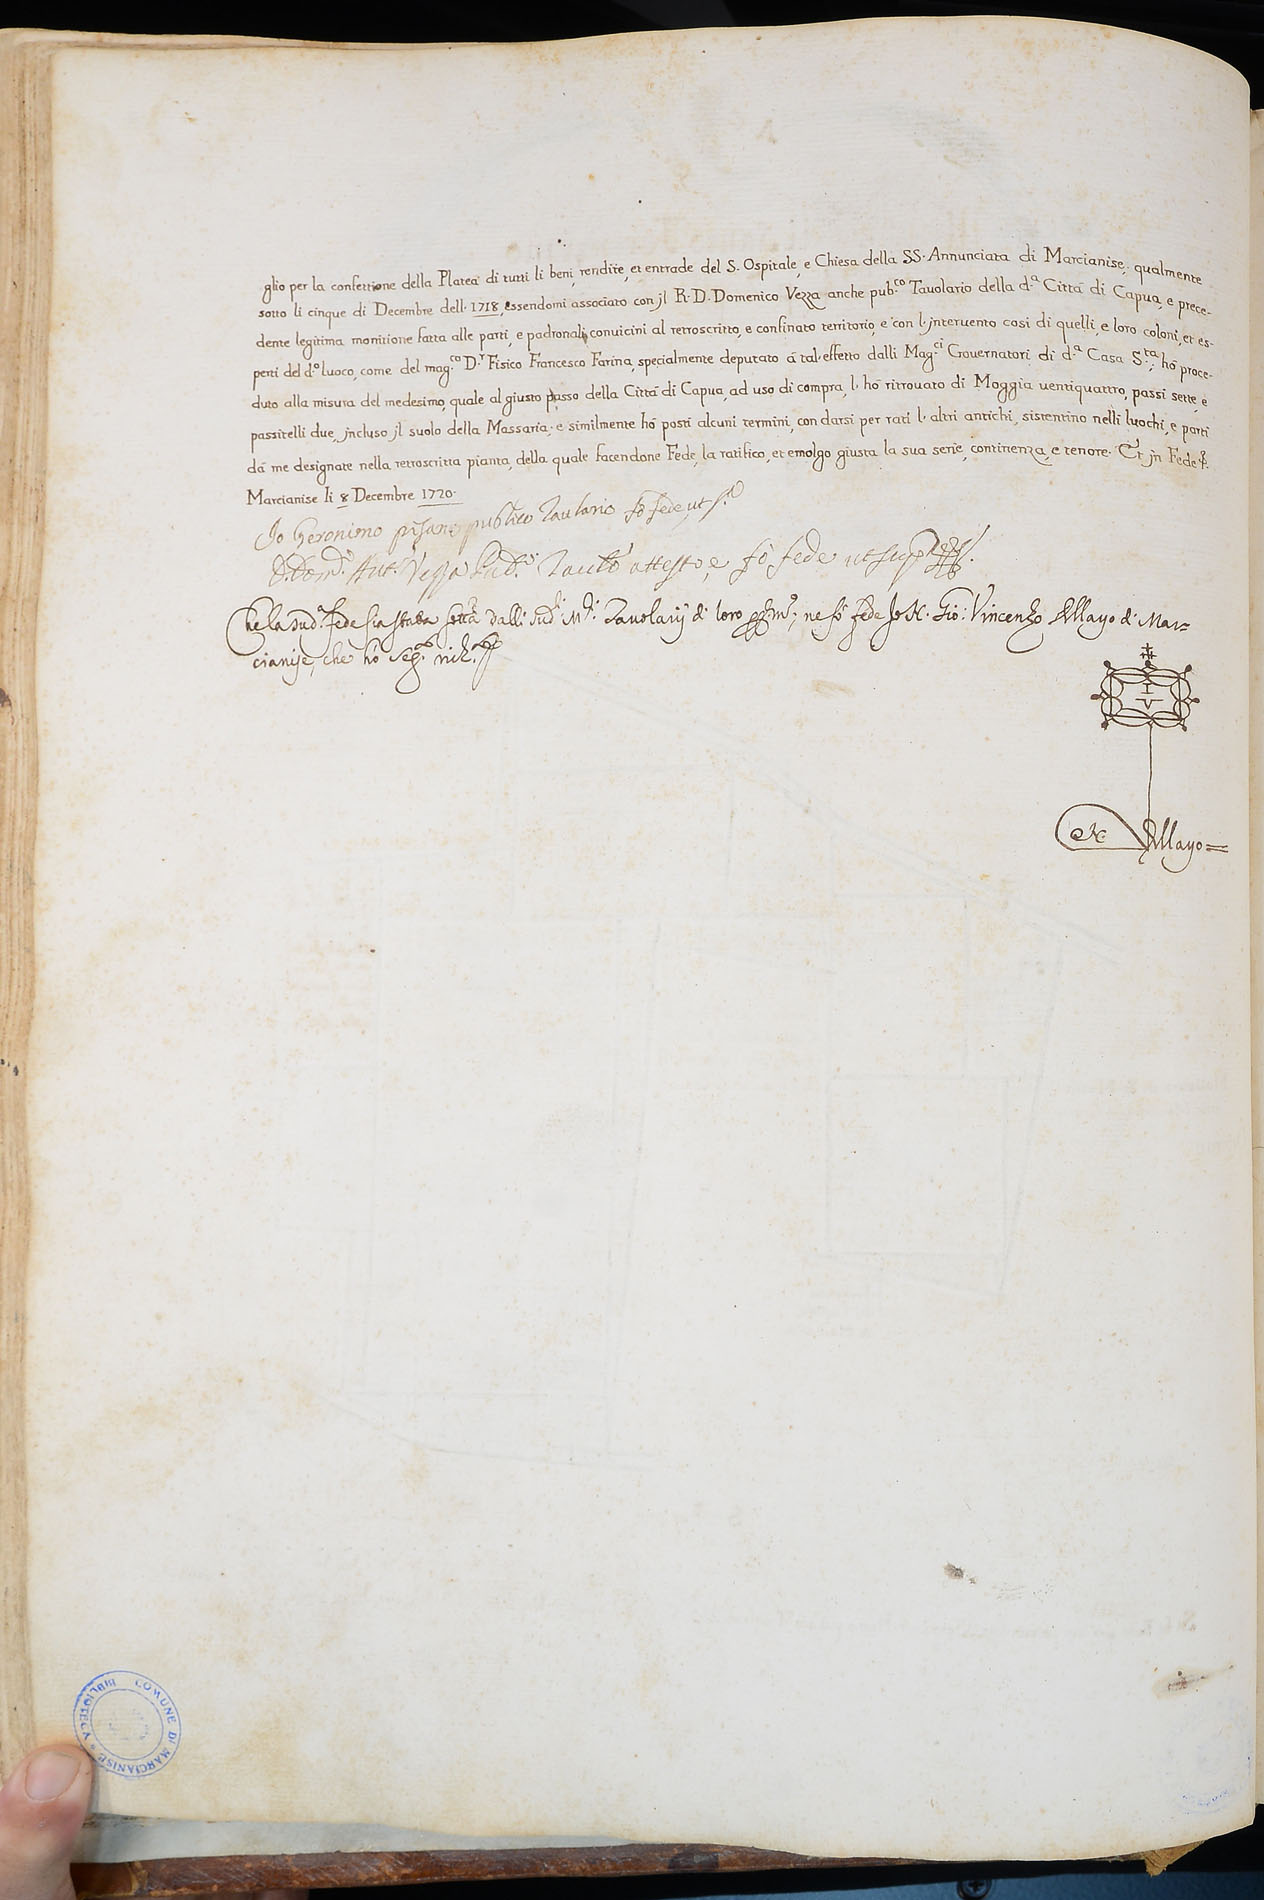 glio per la confettione della Platea di tutti li beni, rendite, et entrade del S. Ospitale, e Chiesa della SS. Annunciata di Marcianise, qualmente
sotto li cinque di Decembre dell. 1718, essendomi associato con jl R. D. Domenico Vezza anche pub.co Tauolario della d.a Cittá di Capua, e prece-
dente legitima monitione fatta alle parti, e padronali conuicini al retroscritto, e confinato territorio, e con l'jnteruento cosi di quelli, e loro coloni, et es-
perti del d.o luoco, come del mag.co D.r Fisico Francesco Farina, specialmente deputato á tal'effetto dalli Mag.ci Gouernatori di d.a Casa S.ta, hó proce-
duto alla misura del medesimo, quale al giusto passo della Cittá di Capua, ad uso di compra, l' hó ritrouato di Moggia uentiquattro, passi sette, e
passitelli due, jncluso jl suolo della Massaria; e similmente hó posti alcuni termini, con darsi per rati l' altri antichi, sistentino nelli luochi, e parti
dá me designate nella retroscritta pianta, della quale facendone Fede, la ratifico, et emolgo giusta la sua serie, continenza, e tenore. Et jn Fede
Marcianise li 8 Decembre 1720.
Io Geronimo pisano publico Tauolario fó fede ut s.a
D. Dom.co Ant.o Vezza Attesto, e fó fede ut supra
Che la sud.a fede sia stata dalli sud.i M.ci Tauolarij di loro ne fó fede Io N. Gio: Vincenzo Allayo di Mar=
cianise, che hó seg.to
I
V
N. Allayo=
COMUNE DI MARCIANISE * BIBLIOTECA